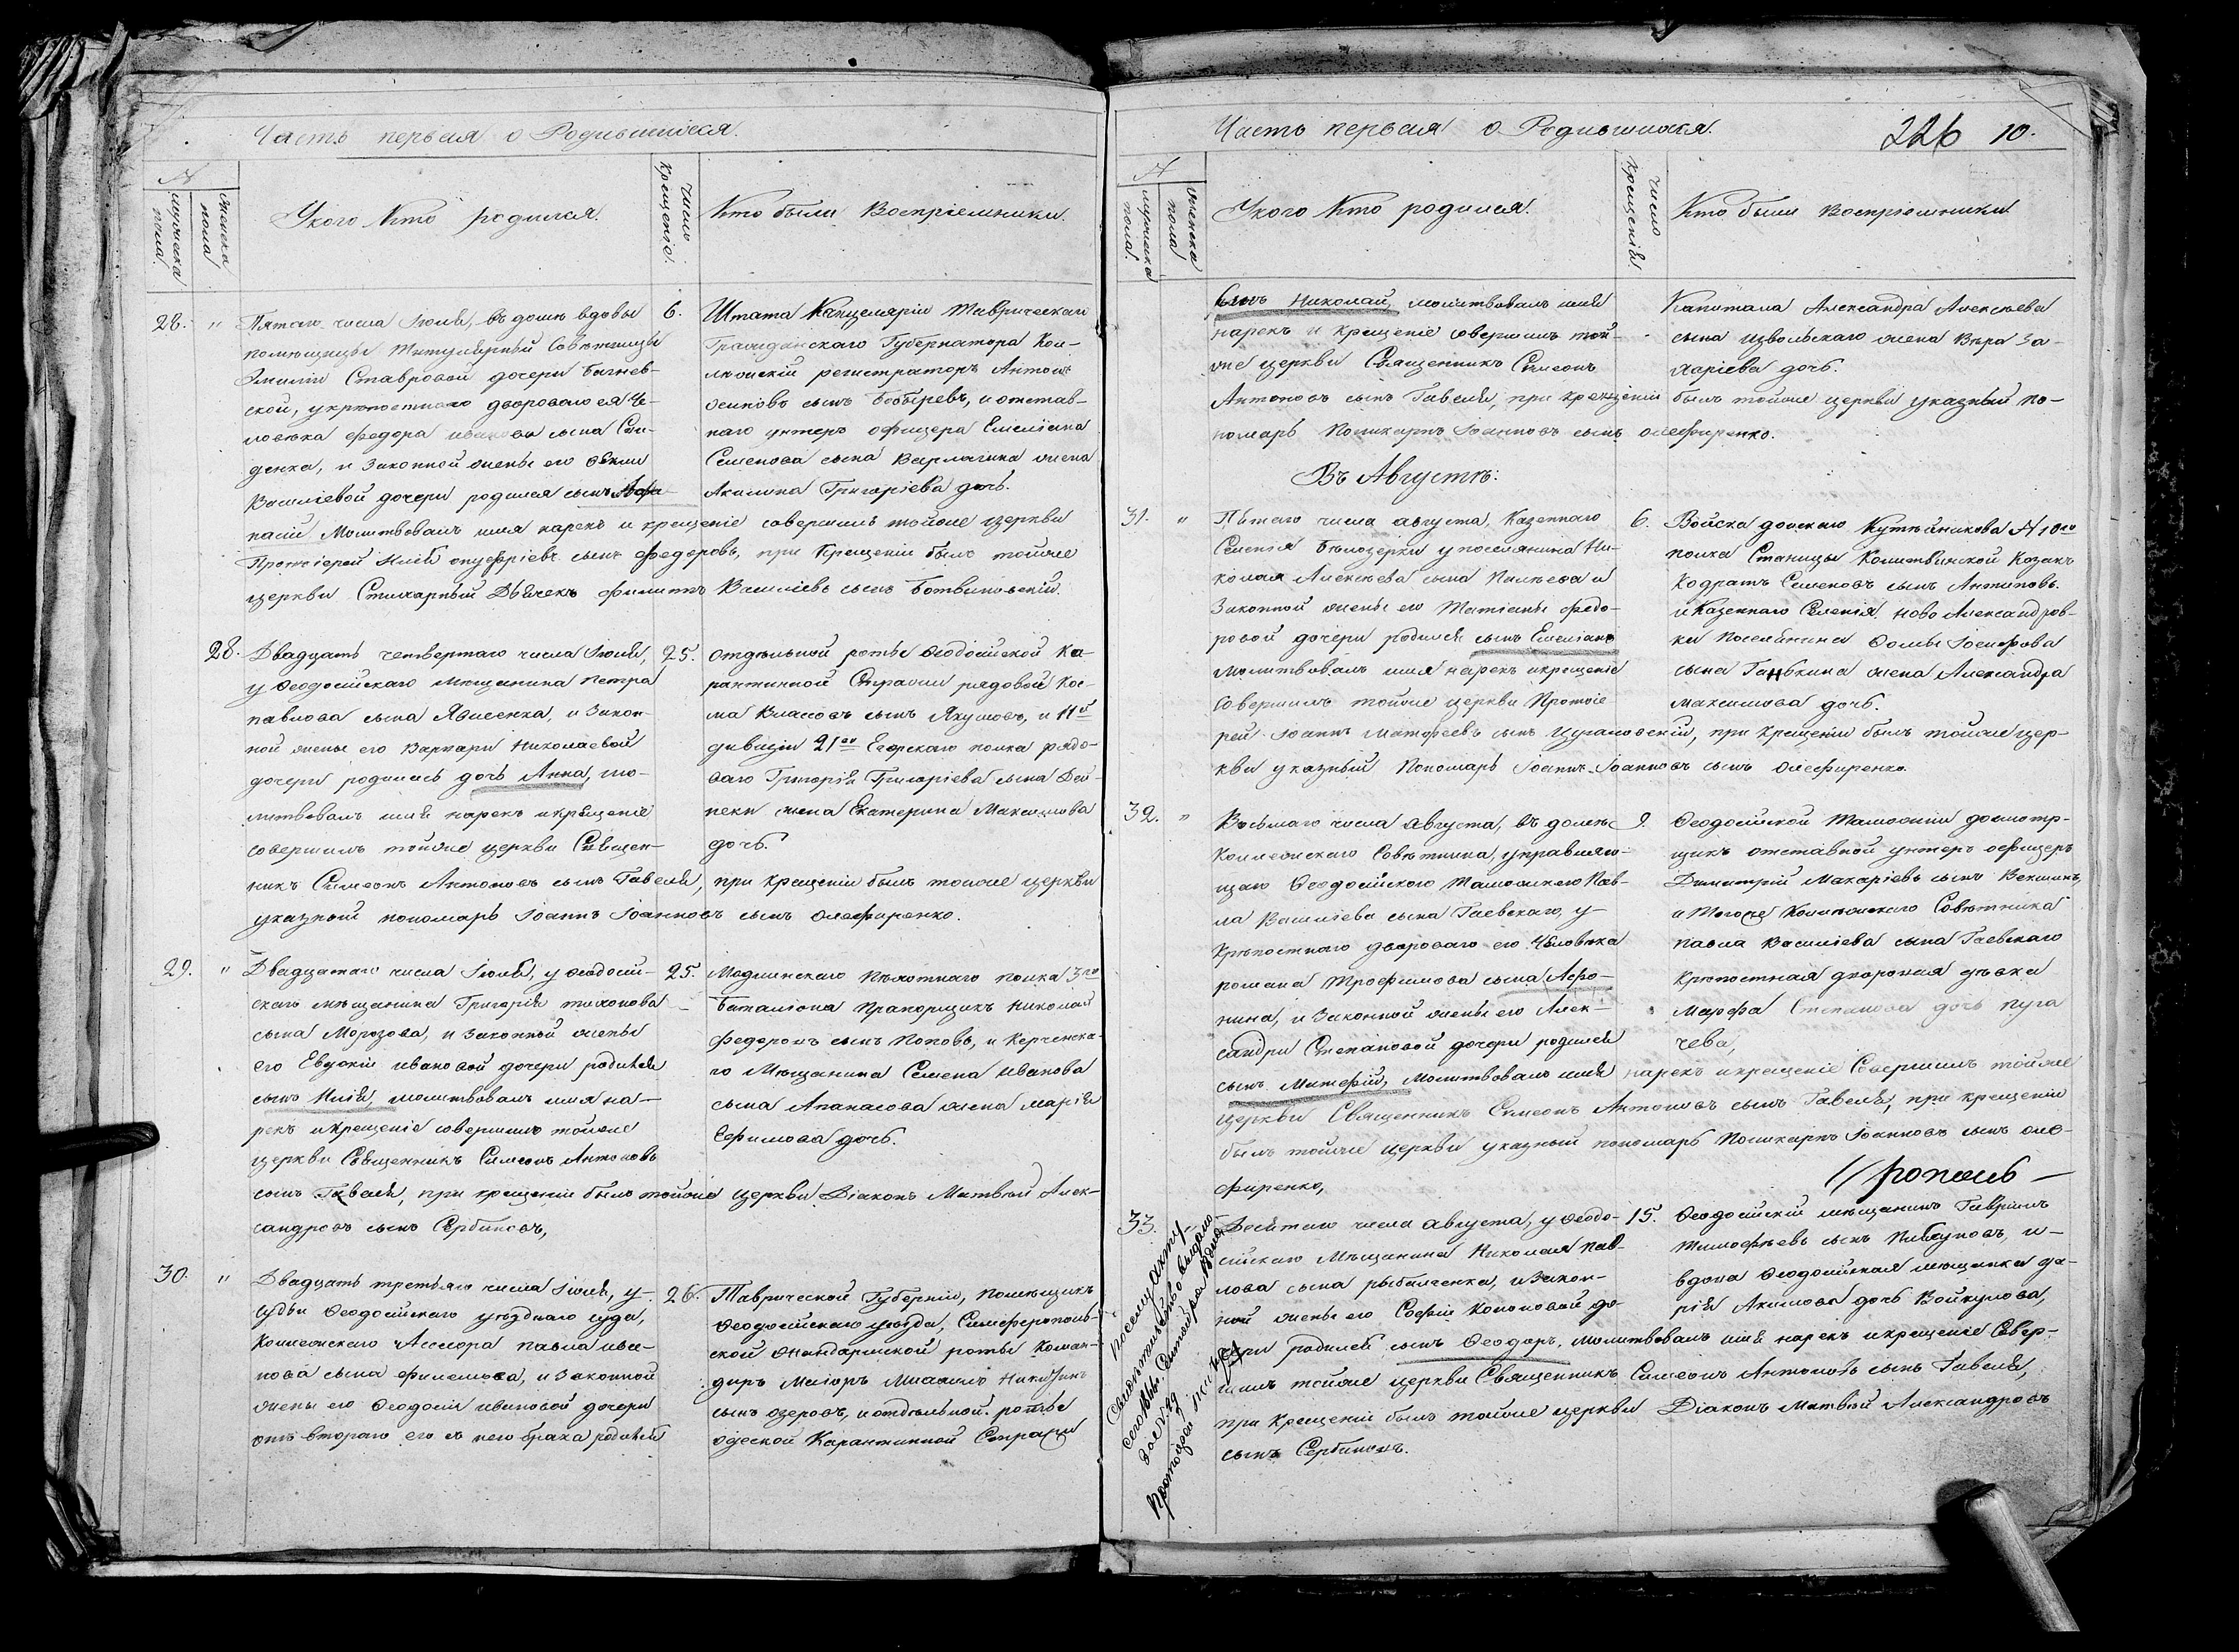 Часть первая о Родившихся.
№
мужеска пола.
женска пола
У кого Кто родился.
Число Крещенія.
Кто были Воспріемники.
28. "
Пятаго числа Іюля, въ доме вдовы
помѣщицы Титулярной Совѣтницы
Эмиліи Ставровой дочери Багнев-
ской, у крѣпостнаго двороваго ея Че-
ловѣка Федора Иванова сына
денка, и Законной жены его
Василіевой дочери родился сынъ Афа-
насій Молитвовалъ имя нарекъ и крещеніе совершилъ тойже церкви
Протоіерей Илія онуфріевъ сынъ Федоровъ, при Крещеніи былъ тойже
церкви Стихарный Дьячекъ Филиппъ Василіевъ сынъ Ботвиновскій.
6.
Штата Канцеляріи Таврическаго
Гражданскаго Губернатора Кол-
лежскій регистраторъ Антонъ
осиповъ сынъ Бобыревъ, и отстав-
наго унтеръ офицера Емеліана
Семенова сына Варлагина жена
Акилина Григоріева дочь.
28.
Двадцать четвертаго числа Іюля,
у Ѳеодосійскаго Мещанина Петра
павлова сына Явисенка, и Закон-
ной жены его Варвары Николаевой
дочери родилась дочь Анна, мо-
литвовалъ имя нарекъ и крещеніе
совершилъ тойже церкви Священ-
никъ Симеонъ Антоновъ сынъ Гавеля, при крещеніи былъ тойже церкви
указный пономарь Іоаннъ Іоанновъ сынъ Олефиренко.
25.
Отдѣльной роты Ѳеодосійской Ка-
рантинной Стражи рядовой Кос-
ма Власовъ сынъ Якумовъ, и 11й
дивизіи 21го Егорскаго полка рядо-
ваго Григорія Григоріева сына Дей-
неки жена Екатерина Максимова
дочь.
29. "
Двадцатаго числа Іюля, у Ѳеодосій-
скаго мѣщанина Григорія тихонова
сына Морозова, и Законной жены
его Евдокіи ивановой дочери родился
сынъ Илія, молитвовалъ имя на-
рекъ и крещеніе совершилъ тойже
церкви Священникъ Симеонъ Антоновъ
сынъ Гавеля, при крещеніи былъ тойже церкви Діаконъ Матвѣй Алек-
сандровъ сынъ Сербиновъ,
25.
Модлинскаго Пѣхотнаго полка 3го
Баталіона Прапорщикъ Николай
Федоровъ сынъ Поповъ, и Керченска-
го Мѣщанина Семена Иванова
сына Апанасова жена Марія
Ефимова дочь.
30. "
Двадцать третьяго числа Іюля, у
судьи Ѳеодосійскаго уѣзднаго суда,
Коллежскаго Ассесора павла ива-
нова сына и Законной
жены его Ѳеодосіи ивановой дочери
отъ втораго его съ нею брака родился
26.
Таврической Губерніи, Помѣщикъ
Ѳеодосійскаго уѣзда, Симферополь-
ской Жандармской роты Коман-
диръ Маіоръ Михаилъ Никитинъ
сынъ Озеровъ, и отдѣльной роты
Одеской Карантинной Стражи
Часть первая о Родившихся.
226 10.
№
мужеска пола.
женска пола
У кого Кто родился.
Число Крещенія
Кто были Воспріемники
сынъ Николай, молитвовалъ имя
нарекъ и крещеніе совершилъ той-
же церкви Священникъ Симеонъ
Антоновъ сынъ Гавеля, при крещеніи былъ тойже церкви указный по-
номарь Поликарпъ Іоанновъ сынъ Олефиренко.
Капитана Александра Алексѣева
сына извольскаго жена Вѣра За-
харіева дочь.
Въ Августѣ:
31. "
Пѣтаго числа августа, Казеннаго
Селенія Бѣлозерки у поселянина Ни-
колая Алексѣева сына и
Законной жены его Татіаны Федо-
ровой дочери родился сынъ Емеліанъ
Молитвовалъ имя нарекъ и крещеніе
Совершилъ тойже церкви Протоіе-
рей Іоаннъ Матфеевъ сынъ Цугановскій, при крещеніи былъ тойже цер-
кви указный Пономарь Іоаннъ Іоанновъ сынъ Олефиренко.
6.
Войска донскаго Кутейникова № 10го
полка Станицы Калитвинской Казакъ
Кодратъ Семеновъ сынъ Антиповъ.
и Казеннаго Селенія Ново Александров-
ки Поселянина Ѳомы Іосифова
сына жена Александра
максимова дочь.
32. "
Восьмаго числа августа, въ доме
Коллежскаго Совѣтника, управляю-
щаго Ѳеодосійскою Таможнею Пав-
ла Василіева сына Гаевскаго, у
Крѣпостнаго двороваго его Человѣка
романа Трофимова сына Афо-
нина, и Законной жены его Алек-
сандры Степановой дочери родился
сынъ Матфій, Молитвовалъ имя нарекъ и крещеніе Совершилъ тойже
церкви Священникъ Симеонъ Антоновъ сынъ Гавеля, при крещеніи
былъ тойже церкви указный пономарь Поликарпъ Іоанновъ сынъ Оле-
фиренко,
9.
Ѳеодосійской Таможни досмотр-
щикъ отставной унтеръ офицеръ
Димитрій Макаріевъ сынъ Векшинъ,
и Тогоже Коллежскаго Совѣтника
павла Василіева сына Гаевскаго
Крѣпостная дворовая дѣвка
Марфа Степанова дочь пуга
чева,
33.
Десятаго числа августа, у Ѳеодо-
сійскаго Мѣщанина Николая Пав-
лова сына рыбалченка, и Закон-
ной жены его Софіи Кононовой до-
чери родился сынъ Ѳеодоръ, молитвовалъ имя нарекъ и крещеніе Совер-
шилъ тойже церкви Священникъ Симеонъ Антоновъ сынъ Гавеля,
при Крещеніи былъ тойже церкви Діаконъ Матвѣй Александровъ
сынъ Сербиновъ.
15.
Ѳеодосійскій мѣщанинъ Гавріилъ
Тимофѣевъ сынъ и
вдова Ѳеодосійская мещанка да-
рія Акимова дочь Войкулова,
По сему акту
Свидѣтельство выдано
Протоіерей